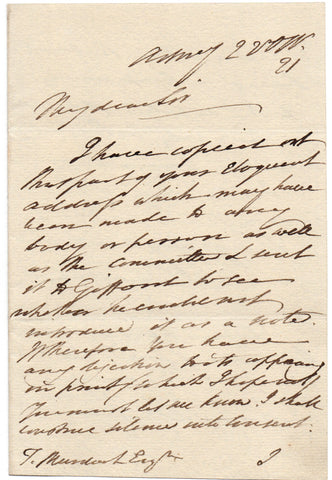 My dear Sir
I have copied out
that part of your Eloquent
address which may have
been made to any
body or person as well
as the Committee & sent
it to Gifford to see
whether he could not
introduce it as a note.
Wherefore you have
any objection to its appearing
in print (which I hope not)
You must let me know. I shall
construe silence into consent.
T. Murdoch Esqre